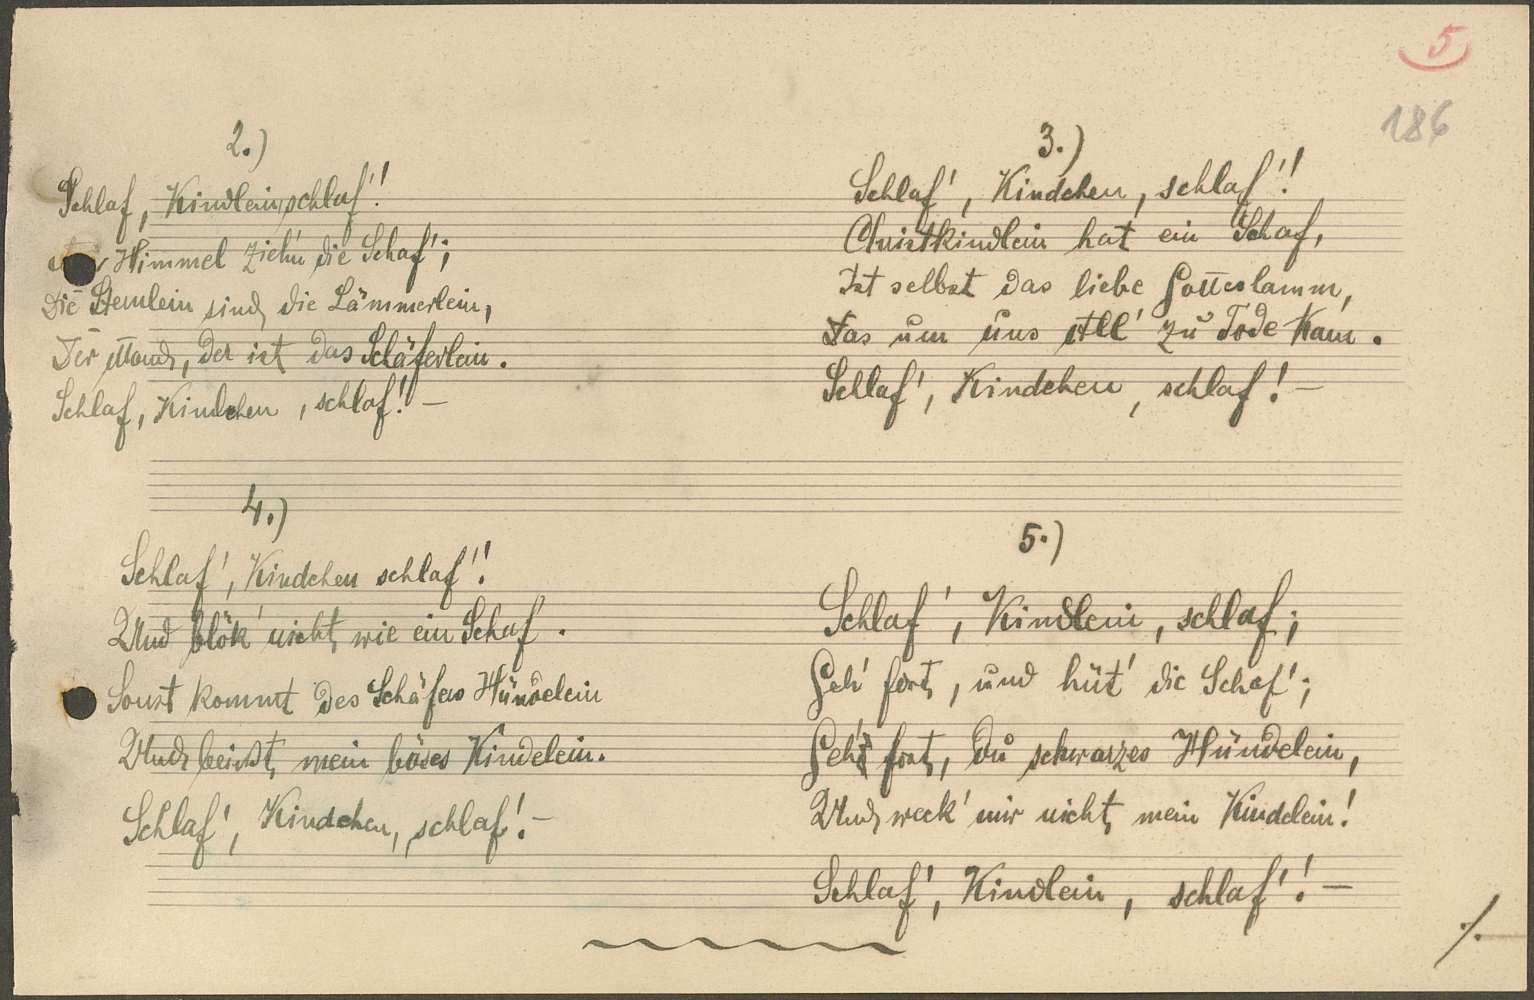 5
186
2.)
Schlaf, Kindlein, schlaf'!
Himmel zieh'n die Schaf';
Die Sternlein sind die Lämmerlein,
Der Mond, der ist das Schäferlein.
Schlaf, Kindchen, schlaf! —
3.)
Schlaf', Kindchen, schlaf'!
Christkindlein hat ein Schaf,
Ist selbst das liebe Gotteslamm,
Das um uns All' zu Tode kam.
Schlaf', Kindchen, schlaf! —
4.)
Schlaf', Kindchen schlaf'!
Und blök' nicht wie ein Schaf.
Sonst kommt des Schäfers Hündelein
Und beißt mein böses Kindelein.
Schlaf', Kindchen, schlaf'! —
5.)
Schlaf', Kindlein, schlaf;
Geh' fort, und hüt' die Schaf';
Geh' fort, du schwarzes Hündelein,
Und weck' mir nicht mein Kindelein!
Schlaf', Kindlein, schlaf'! —
./.